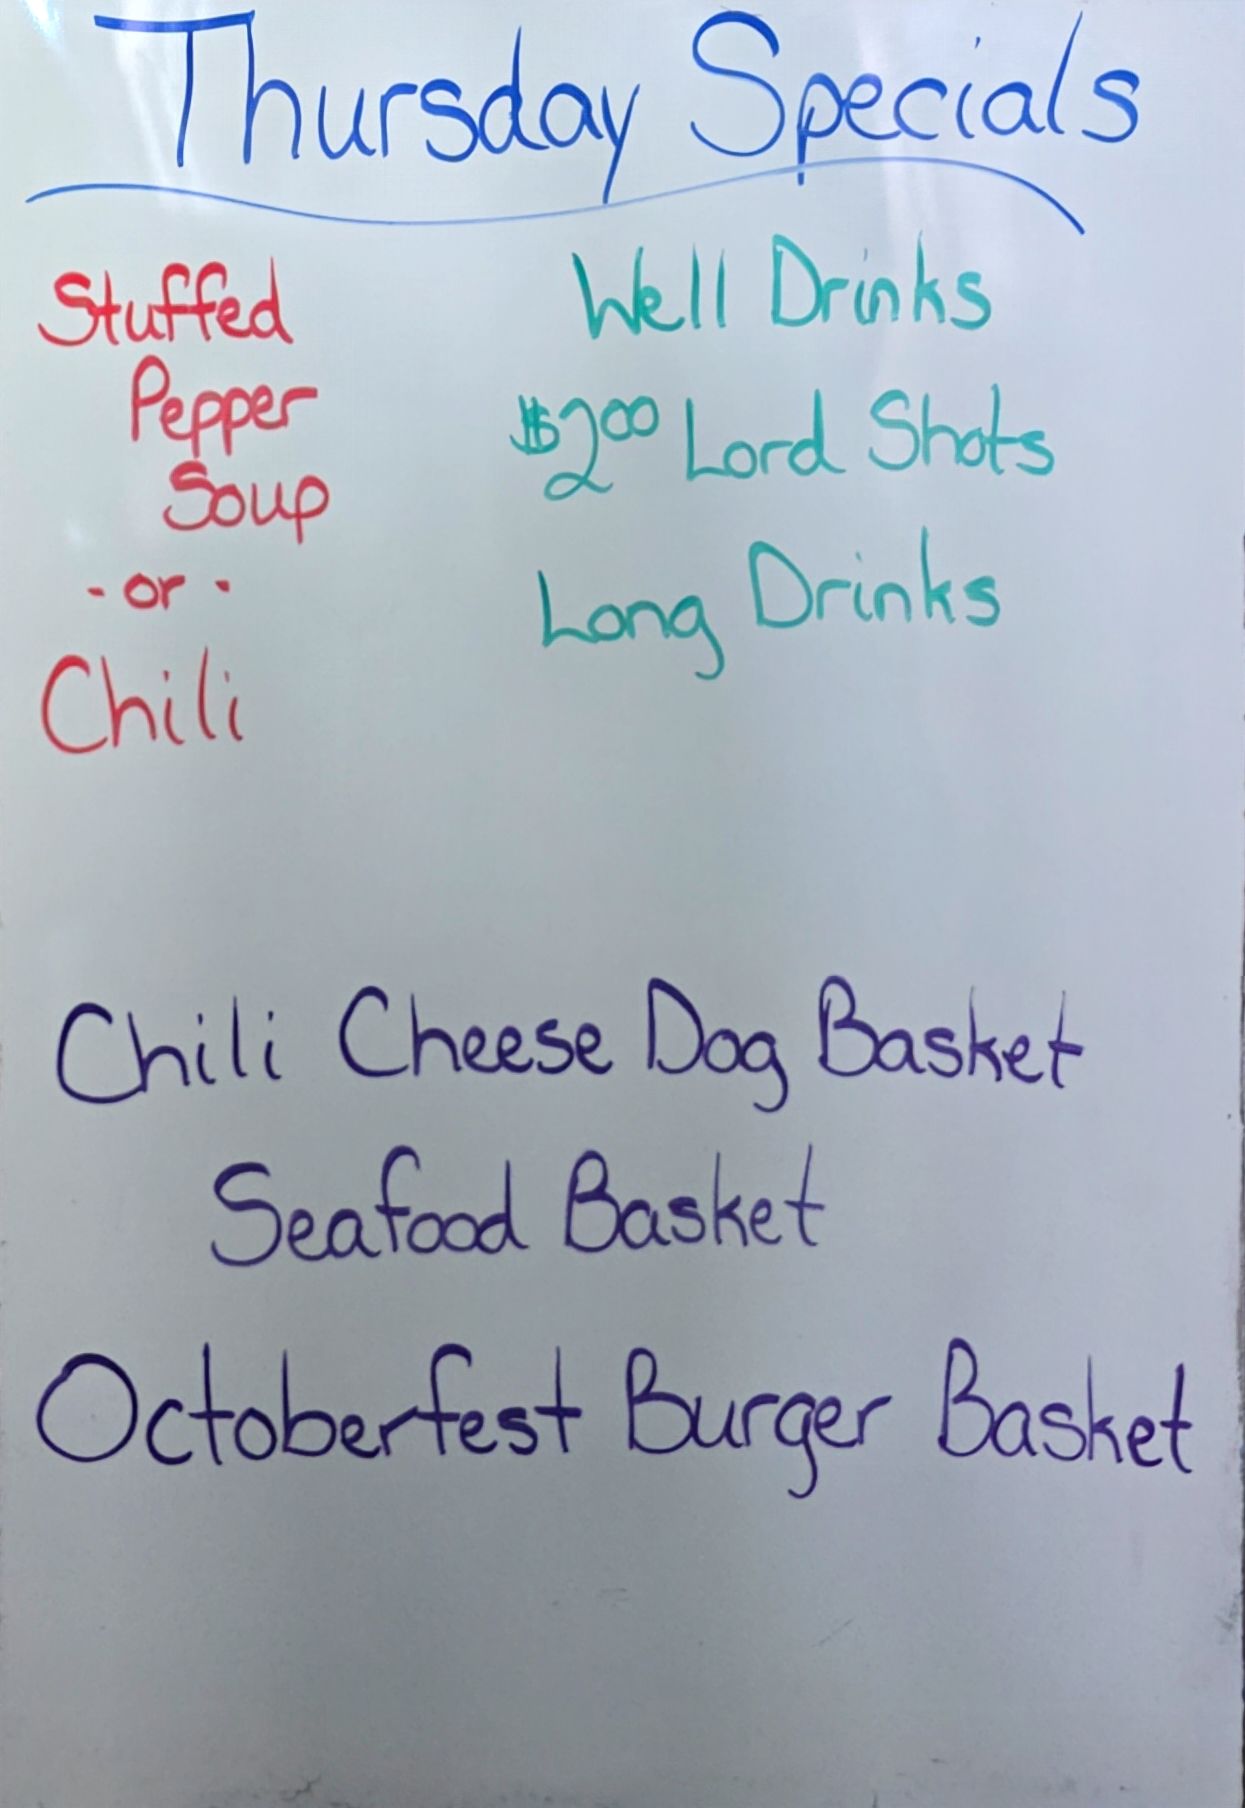 Thursday Specials
Stuffed
Pepper
Soup
- or -
Chili
Well Drinks
$2.00 Lord Shots
Long Drinks
Chili Cheese Dog Basket
Seafood Basket
Octoberfest Burger Basket